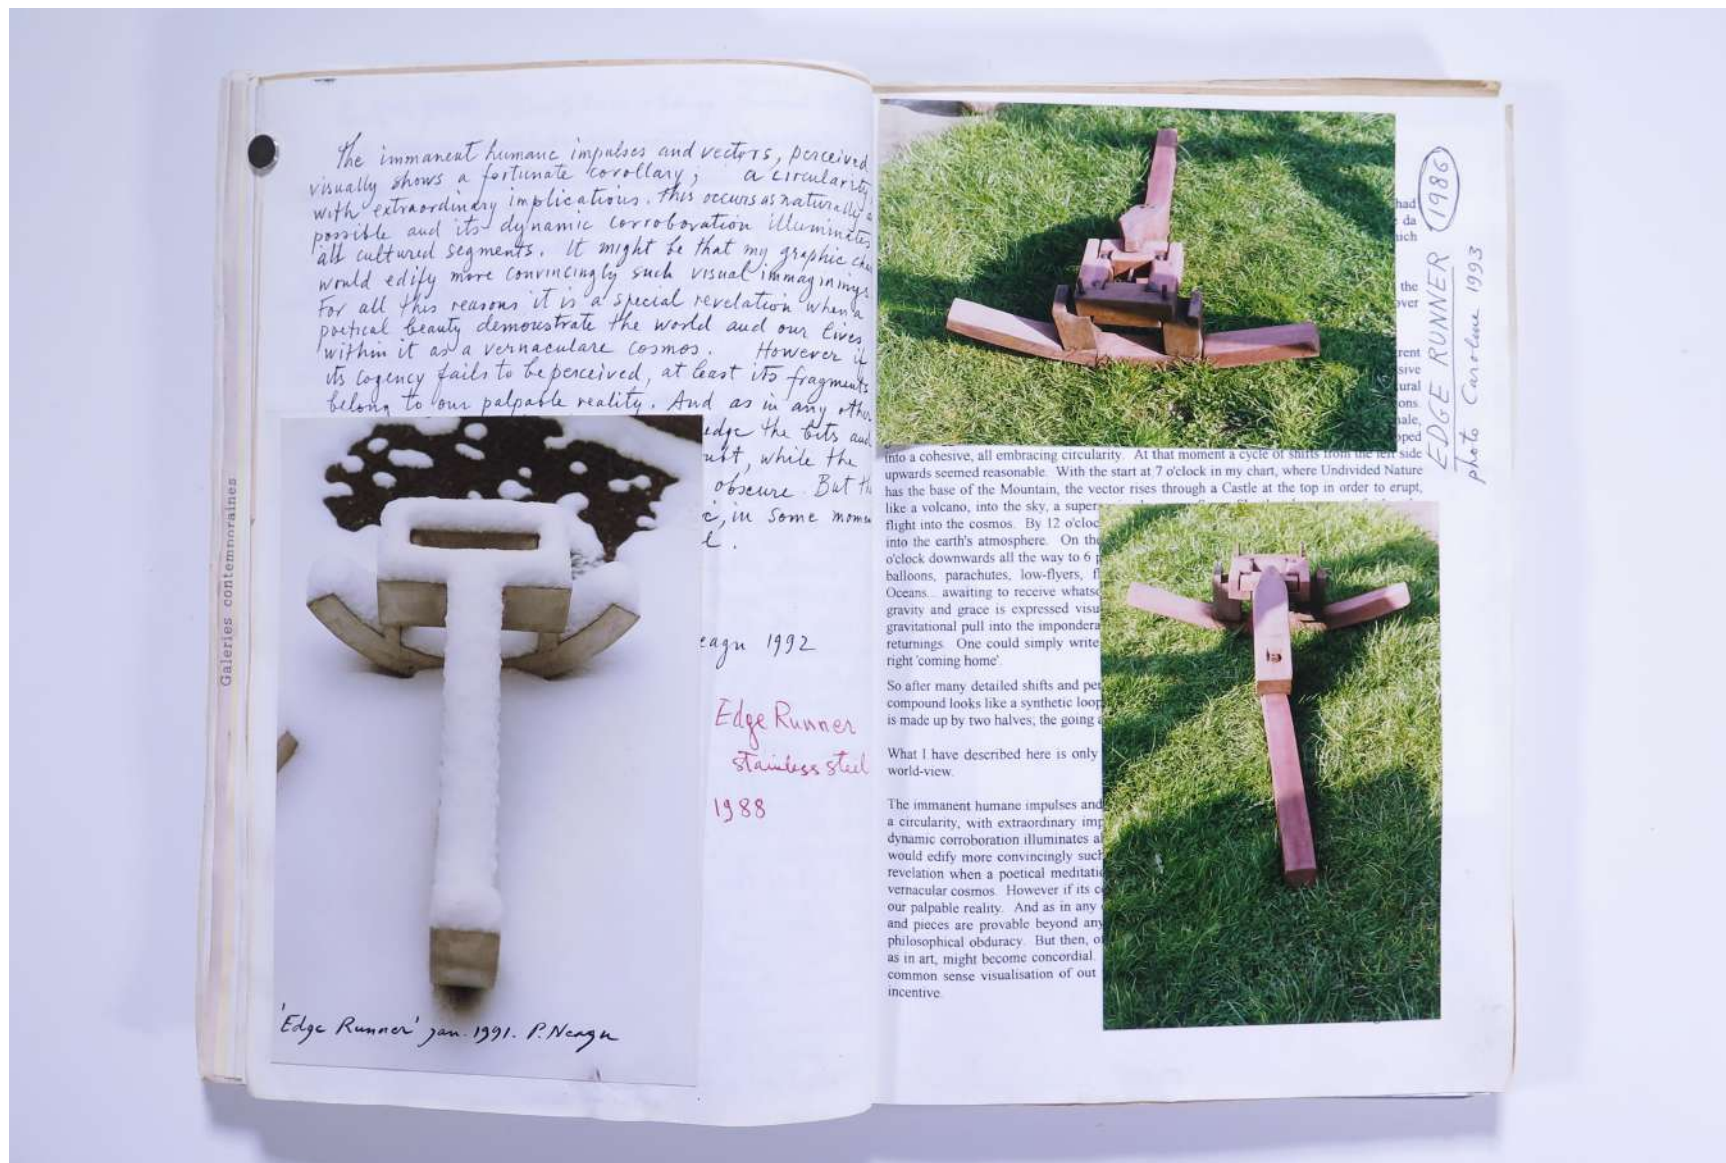 Galeries contemporaines
The immanent humane impulses and vectors, perceived
visually shows a fortunate corollary; a circularity
with extraordinary implications. This occurs as naturally
possible and its dynamic corroboration illuminates
all cultured segments. It might be that my graphic
would edify more convincingly such visual immaginings
For all this reasons it is a special revelation when a
poetical beauty demonstrate the world and our lives
within it as a vernaculare cosmos. However if
its cogency fails to be perceived, at least its fragments
belong to our palpable reality. And as in any other
edge the bits and
while the
obscure. But
in some
eagu 1992
Edge Runner
stainless steel
1988
'Edge Runner' jan. 1991. P. Neagu
EDGE RUNNER 1986
photo Caroline 1993
had
da
ich
the
over
rent
sive
ural
ons.
ale,
pped
into a cohesive, all embracing circularity. At that moment a cycle of shifts from the left side
upwards seemed reasonable. With the start at 7 o'clock in my chart, where Undivided Nature
has the base of the Mountain, the vector rises through a Castle at the top in order to erupt,
like a volcano, into the sky, a super
flight into the cosmos. By 12 o'cloc
into the earth's atmosphere. On the
o'clock downwards all the way to 6 p
balloons, parachutes, low-flyers, f
Oceans... awaiting to receive whatso
gravity and grace is expressed visu
gravitational pull into the impondera
returnings. One could simply write
right 'coming home'.
So after many detailed shifts and per
compound looks like a synthetic loop
is made up by two halves; the going a
What I have described here is only
world-view.
The immanent humane impulses and
a circularity, with extraordinary imp
dynamic corroboration illuminates a
would edify more convincingly such
revelation when a poetical meditatio
vernacular cosmos. However if its c
our palpable reality. And as in any
and pieces are provable beyond any
philosophical obduracy. But then, o
as in art, might become concordial.
common sense visualisation of out
incentive.